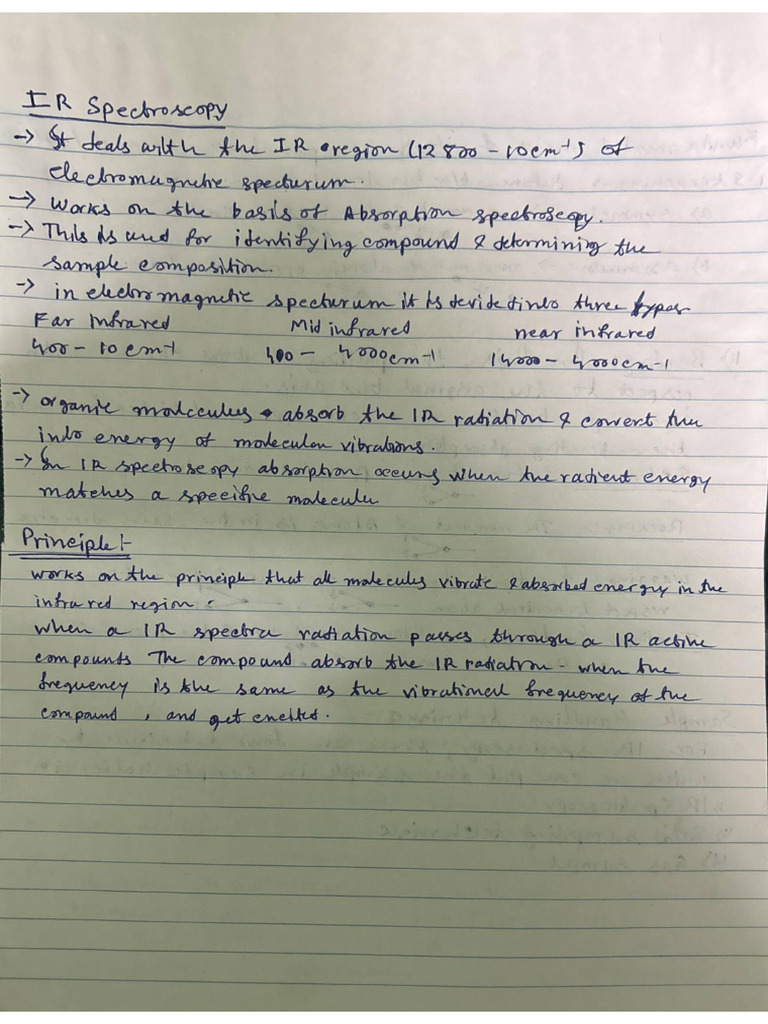 IR Spectroscopy
→ It deals with the IR region (12800 - 10cm⁻¹) of
electromagnetic specturum.
→ Works on the basis of Absorption spectroscopy.
→ This is used for identifying compound & determining the
sample composition.
→ in electromagnetic specturum it is devided into three types
Far Infrared Mid infrared near infrared
400 - 10 cm-1 400 - 4000cm-1 14000 - 4000cm-1
→ organic moleccules absorb the IR radiation & convert the
into energy of moleculon vibrations.
→ In IR spectroscopy absorption occurs when the radient energy
matches a specifire molecule
Principle :-
works on the principle that all molecules vibrate & absorbed energy in the
infrared region.
when a IR spectra radiation passes through a IR active
compounts The compound absorb the IR radiation - when the
frequency is the same as the vibrational frequency of the
compound, and get excited.